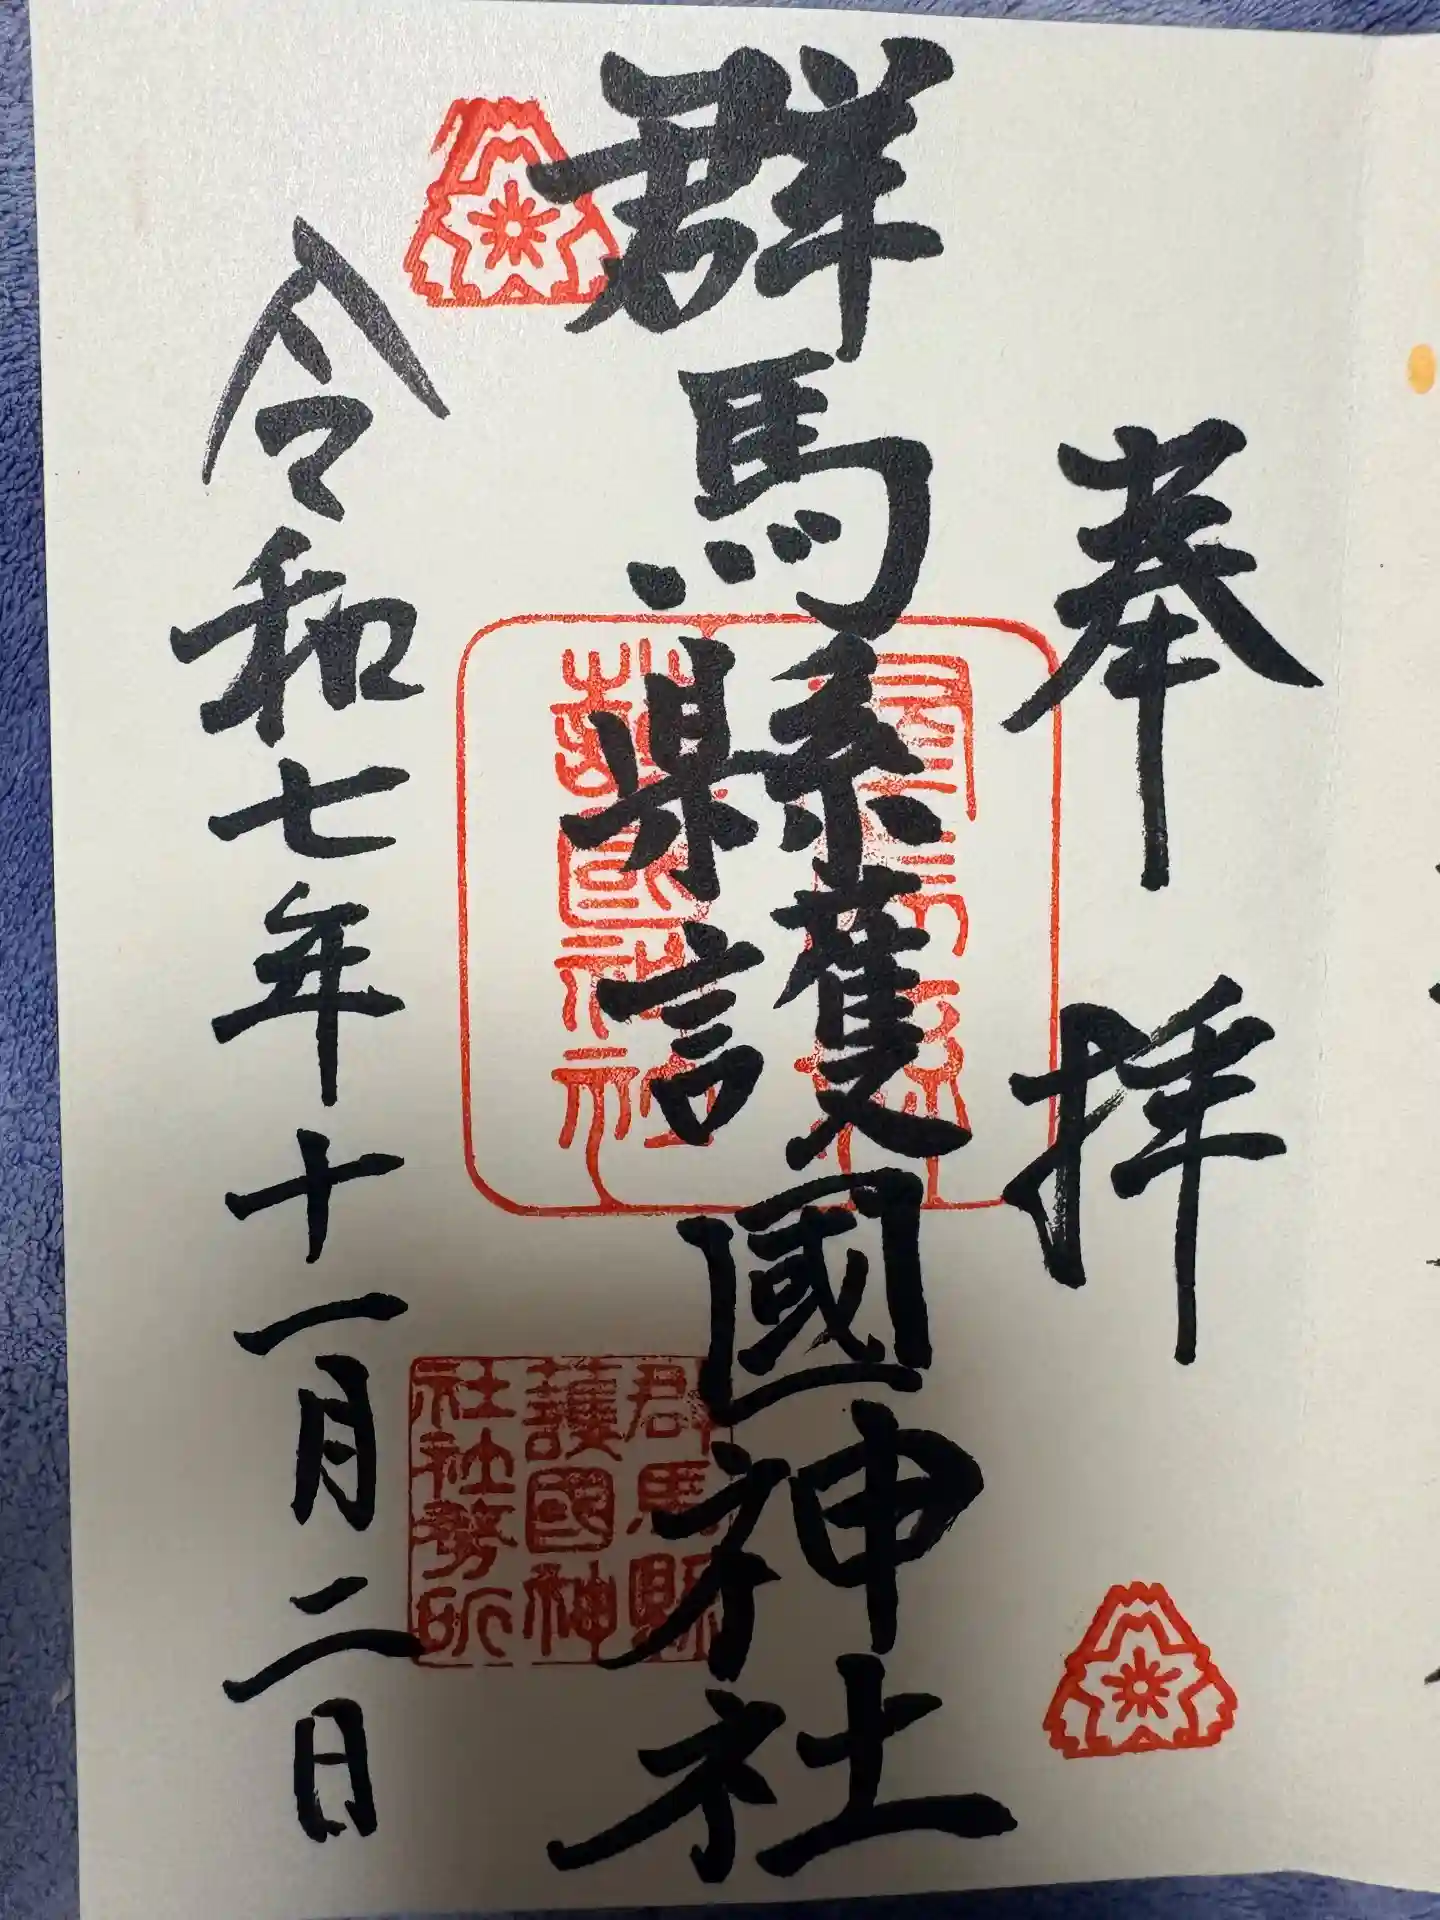 奉拝
群馬縣護國神社
令和七年十一月二日
群馬縣
護國神
社社務所